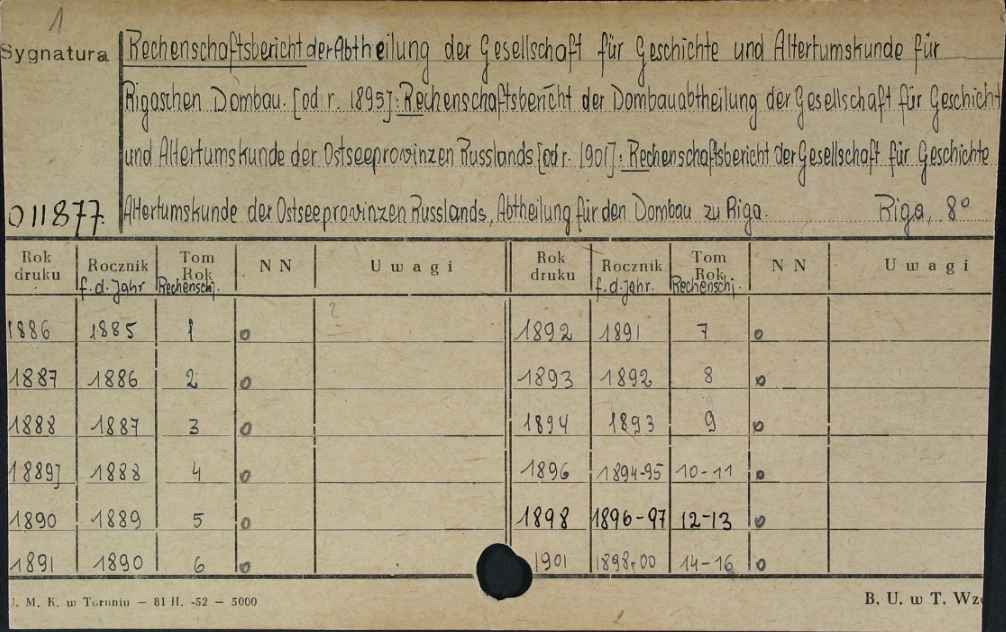 1
Sygnatura
Rechenschaftsbericht der Abtheilung der Gesellschaft für Geschichte und Altertumskunde für
Rigaschen Dombau. [od r. 1895]: Rechenschaftsbericht der Dombauabtheilung der Gesellschaft für Geschicht
und Altertumskunde der Ostseeprovinzen Russlands [od r. 1901]: Rechenschaftsbericht der Gesellschaft für Geschichte
011877. Altertumskunde der Ostseeprovinzen Russlands, Abtheilung für den Dombau zu Riga. Riga, 8°
Rok druku Rocznik f.d. Jahr Tom Rok Rechenschj. NN Uwagi Rok druku Rocznik f.d. Jahr. Tom Rok Rechenschj. NN Uwagi
1886 1885 1 o ? 1892 1891 7 o
1887 1886 2 o 1893 1892 8 o
1888 1887 3 o 1894 1893 9 o
1889] 1888 4 o 1896 1894-95 10-11 o
1890 1889 5 o 1898 1896-97 12-13 o
1891 1890 6 o 1901 1898-00 14-16 o
. M. K. w Toruniu — 81 II. -52 — 5000 B. U. w T. Wzó